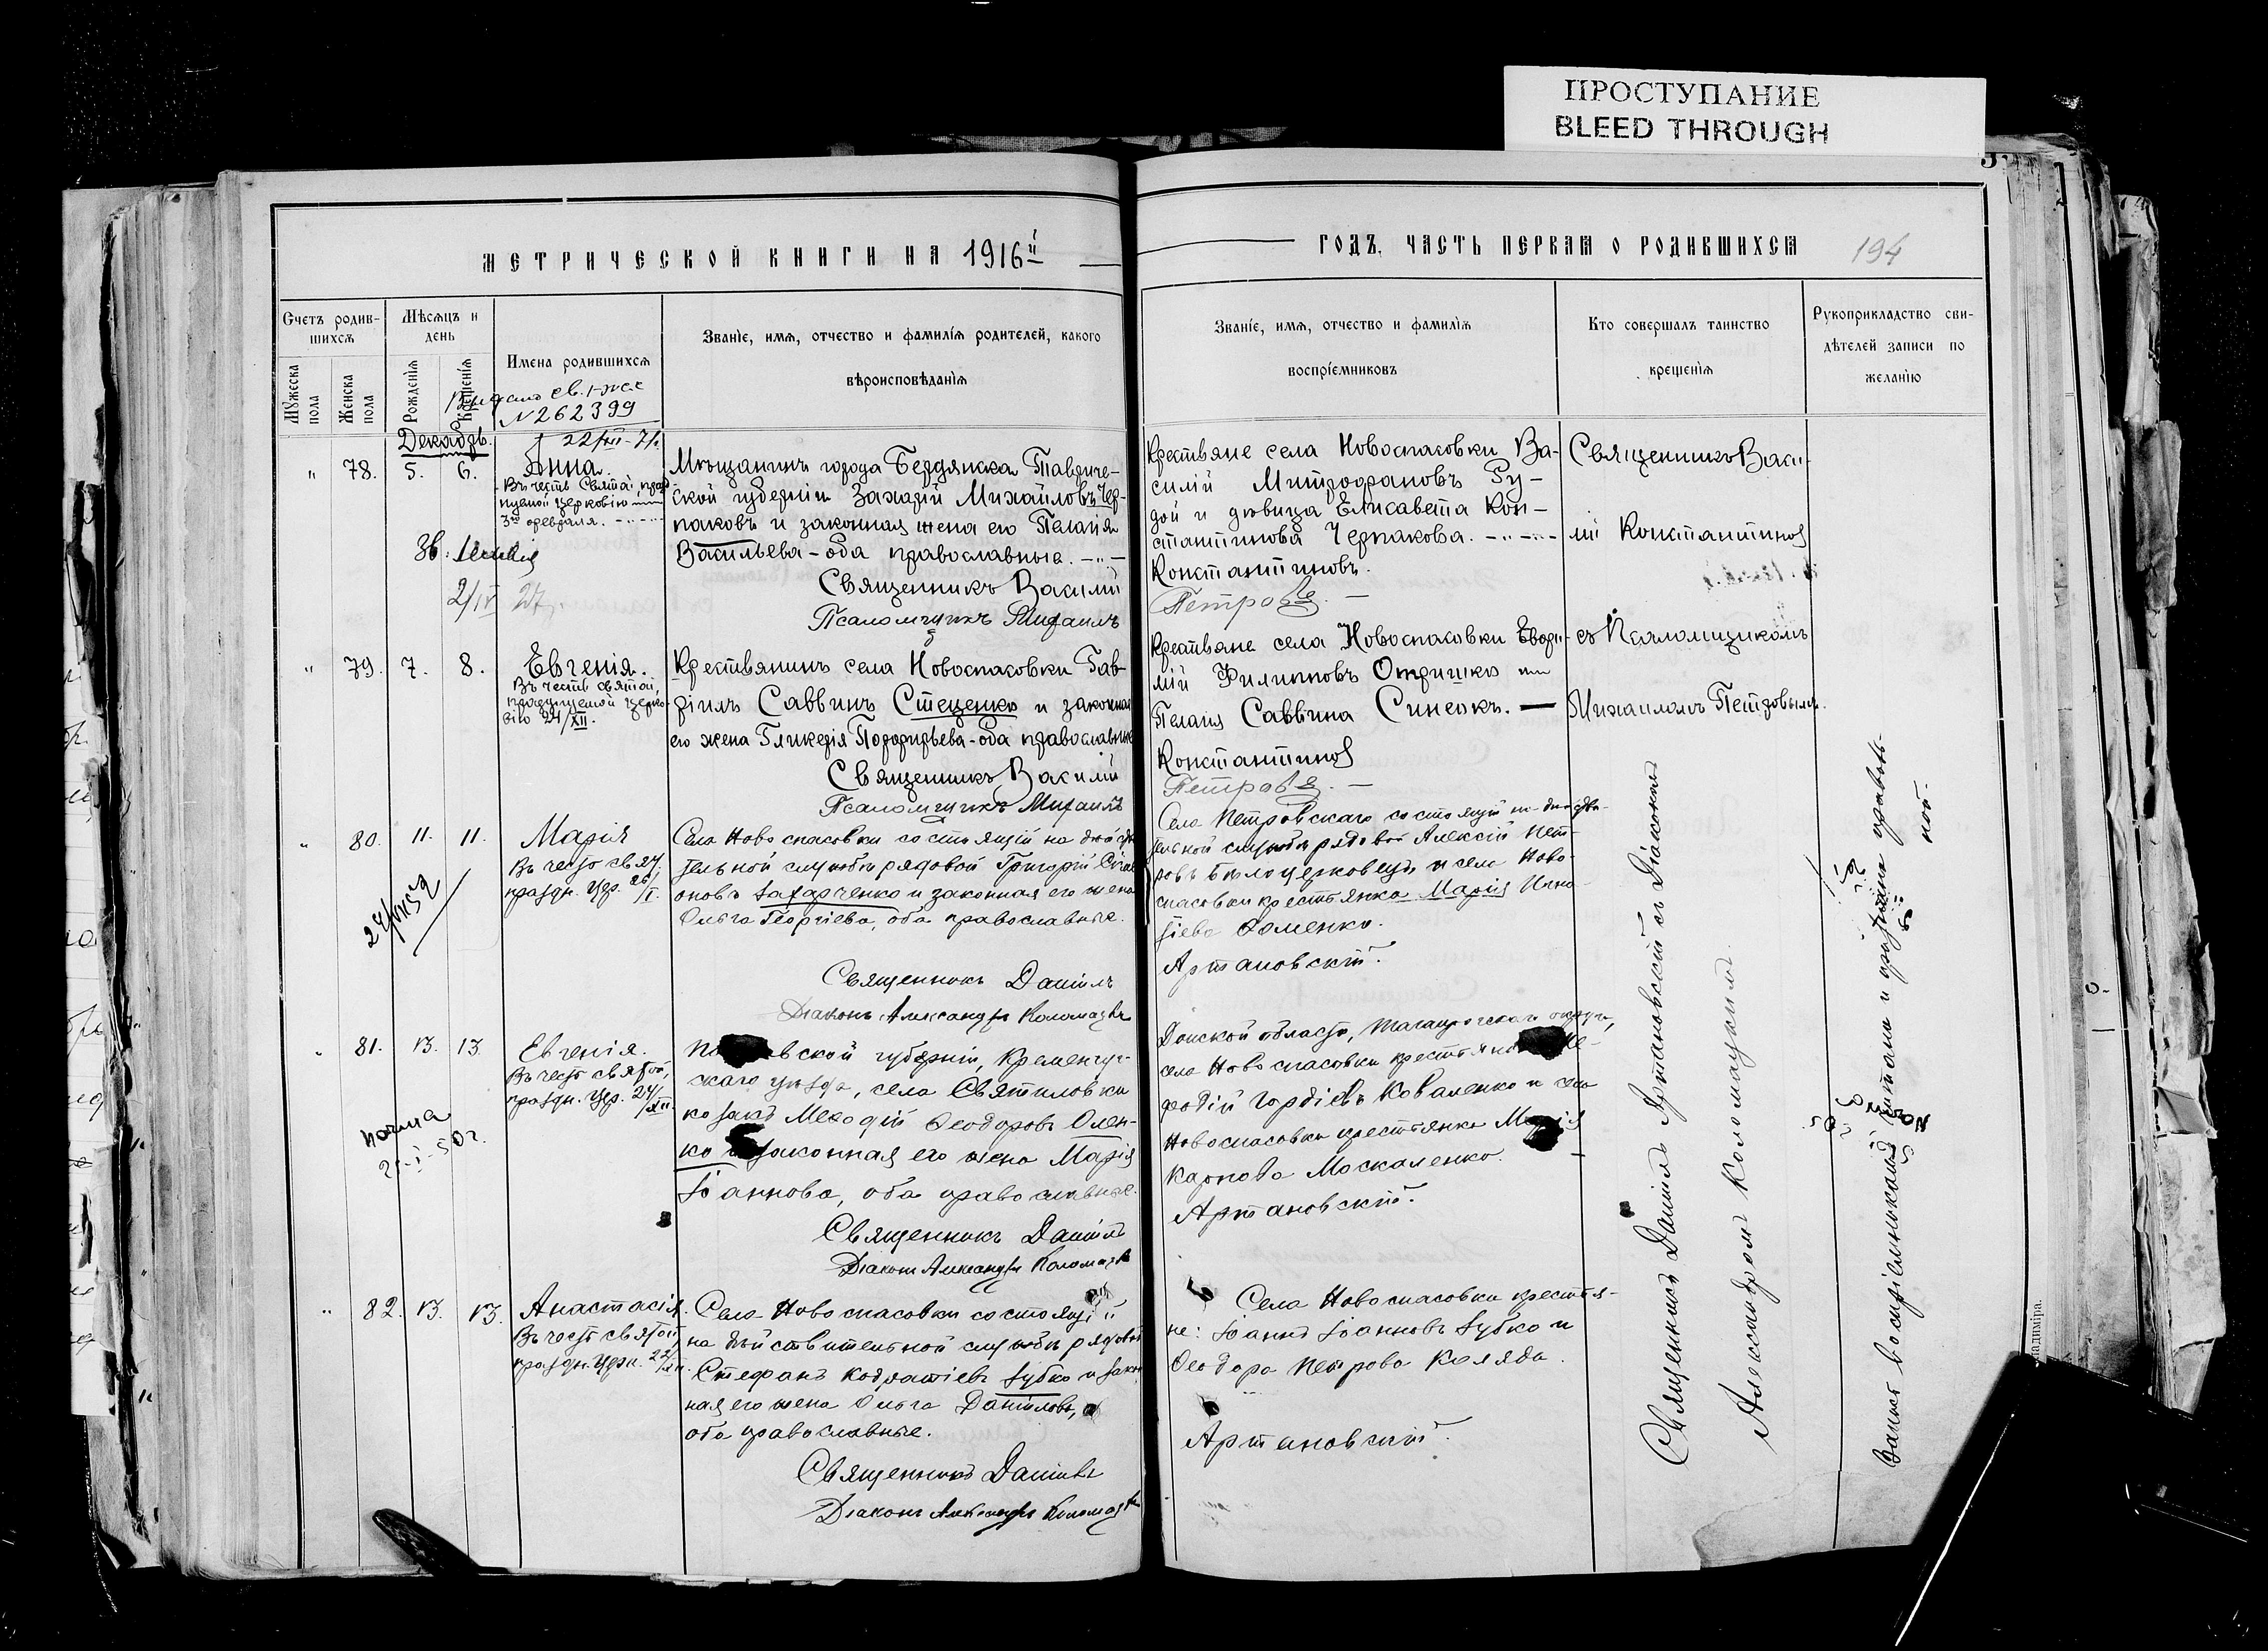 ПРОСТУПАНИЕ
BLEED THROUGH
МЕТРИЧЕСКОЙ КНИГИ НА 1916й
ГОДЪ, ЧАСТЬ ПЕРВАЯ О РОДИВШИХСЯ 194
Счетъ родив-
шихся
Мѣсяцъ и
день
Мужеска пола
Женска пола
Рожденія
Крещенія
Имена родившихся
Званіе, имя, отчество и фамилія родителей, какого
вѣроисповѣданія
Званіе, имя, отчество и фамилія
воспріемниковъ
Кто совершалъ таинство
крещенія
Рукоприкладство сви-
дѣтелей записи по
желанію
св.
N 262399
22/XII-71.
Декабрь.
" 78. 5. 6. Анна.
Въ честь Святой, празд-
нуемой Церковію
3го февраля.
Мѣщанинъ города Бердянска Тавриче-
ской губерніи Захарій Михайловъ Чер-
паковъ и законная жена его Пелагія
Васильева - оба православные.
Священникъ Василій
Псаломщикъ Михаилъ
2/IV 27
Крестьяне села Новоспасовки Ва-
силій Митрофановъ Ру-
дой и дѣвица Елисавета Кон-
стантинова Черпакова.
Константиновъ.
Петровъ.
Священникъ Васи-
лій Константинов
съ Псаломщикомъ
Михаиломъ Петровымъ.
" 79. 7. 8. Евгенія.
Въ честь святой,
празднуемой церко-
вію 24/XII.
Крестьянинъ села Новоспасовки Гав-
ріилъ Саввинъ Стеценко и законная
его жена Гликерія Порфирьева - оба православные
Священникъ Василій
Псаломщикъ Михаилъ
Крестьяне села Новоспасовки Евѳи-
мій Филипповъ Отришко и
Пелагія Саввина Синеокъ.
Константинов
Петровъ.
" 80. 11. 11. Марія
Въ честь свят.
праздн. Цер. 26/I.
24/VII 52
Села Новоспасовки состоящій на дѣйстви-
тельной службѣ рядовой Григорій
оновъ Захарченко и законная его жена
Ольга Георгіева, оба православные.
Священникъ Даніилъ
Діаконъ Александръ Коломацкій
Села Петровскаго состоящій на дѣйстви-
тельной службѣ рядовой Алексій Пет-
ровъ Бѣлоцерковецъ и села Ново-
спасовки крестьянка Марія Игна-
тіева Хоменко.
Артановскій.
" 81. 13. 13. Евгенія.
Въ честь святой,
праздн. Цер. 24/XII.
почта
I-50г.
Полтавской губерніи, Кременчуг-
скаго уѣзда, села Святиловки
козакъ Меѳодій Ѳеодоровъ Олен-
ко и законная его жена Марія
Іоаннова, оба православные.
Священникъ Даніилъ
Діаконъ Александръ Коломацкій
Донской области, Таганрогскаго округа,
села Новоспасовки крестьянинъ Ме-
ѳодій Гордіевъ Коваленко и села
Новоспасовки крестьянка Марія
Карпова Москаленко.
Артановскій.
" 82. 13. 13. Анастасія.
Въ честь святой,
праздн. Церк. 22/XII.
Села Новоспасовки состоящій
на дѣйствительной службѣ рядовой
Стефанъ Кодратіевъ Зубко и закон-
ная его жена Ольга Даніилова,
оба православные.
Священникъ Даніилъ
Діаконъ Александръ Коломацкій
Села Новоспасовки крестья-
не: Іоаннъ Іоанновъ Зубко и
Ѳеодора Петрова Коляда.
Артановскій.
Священникъ Даніилъ Артановскій съ Діакономъ
Александромъ Коломацкимъ.